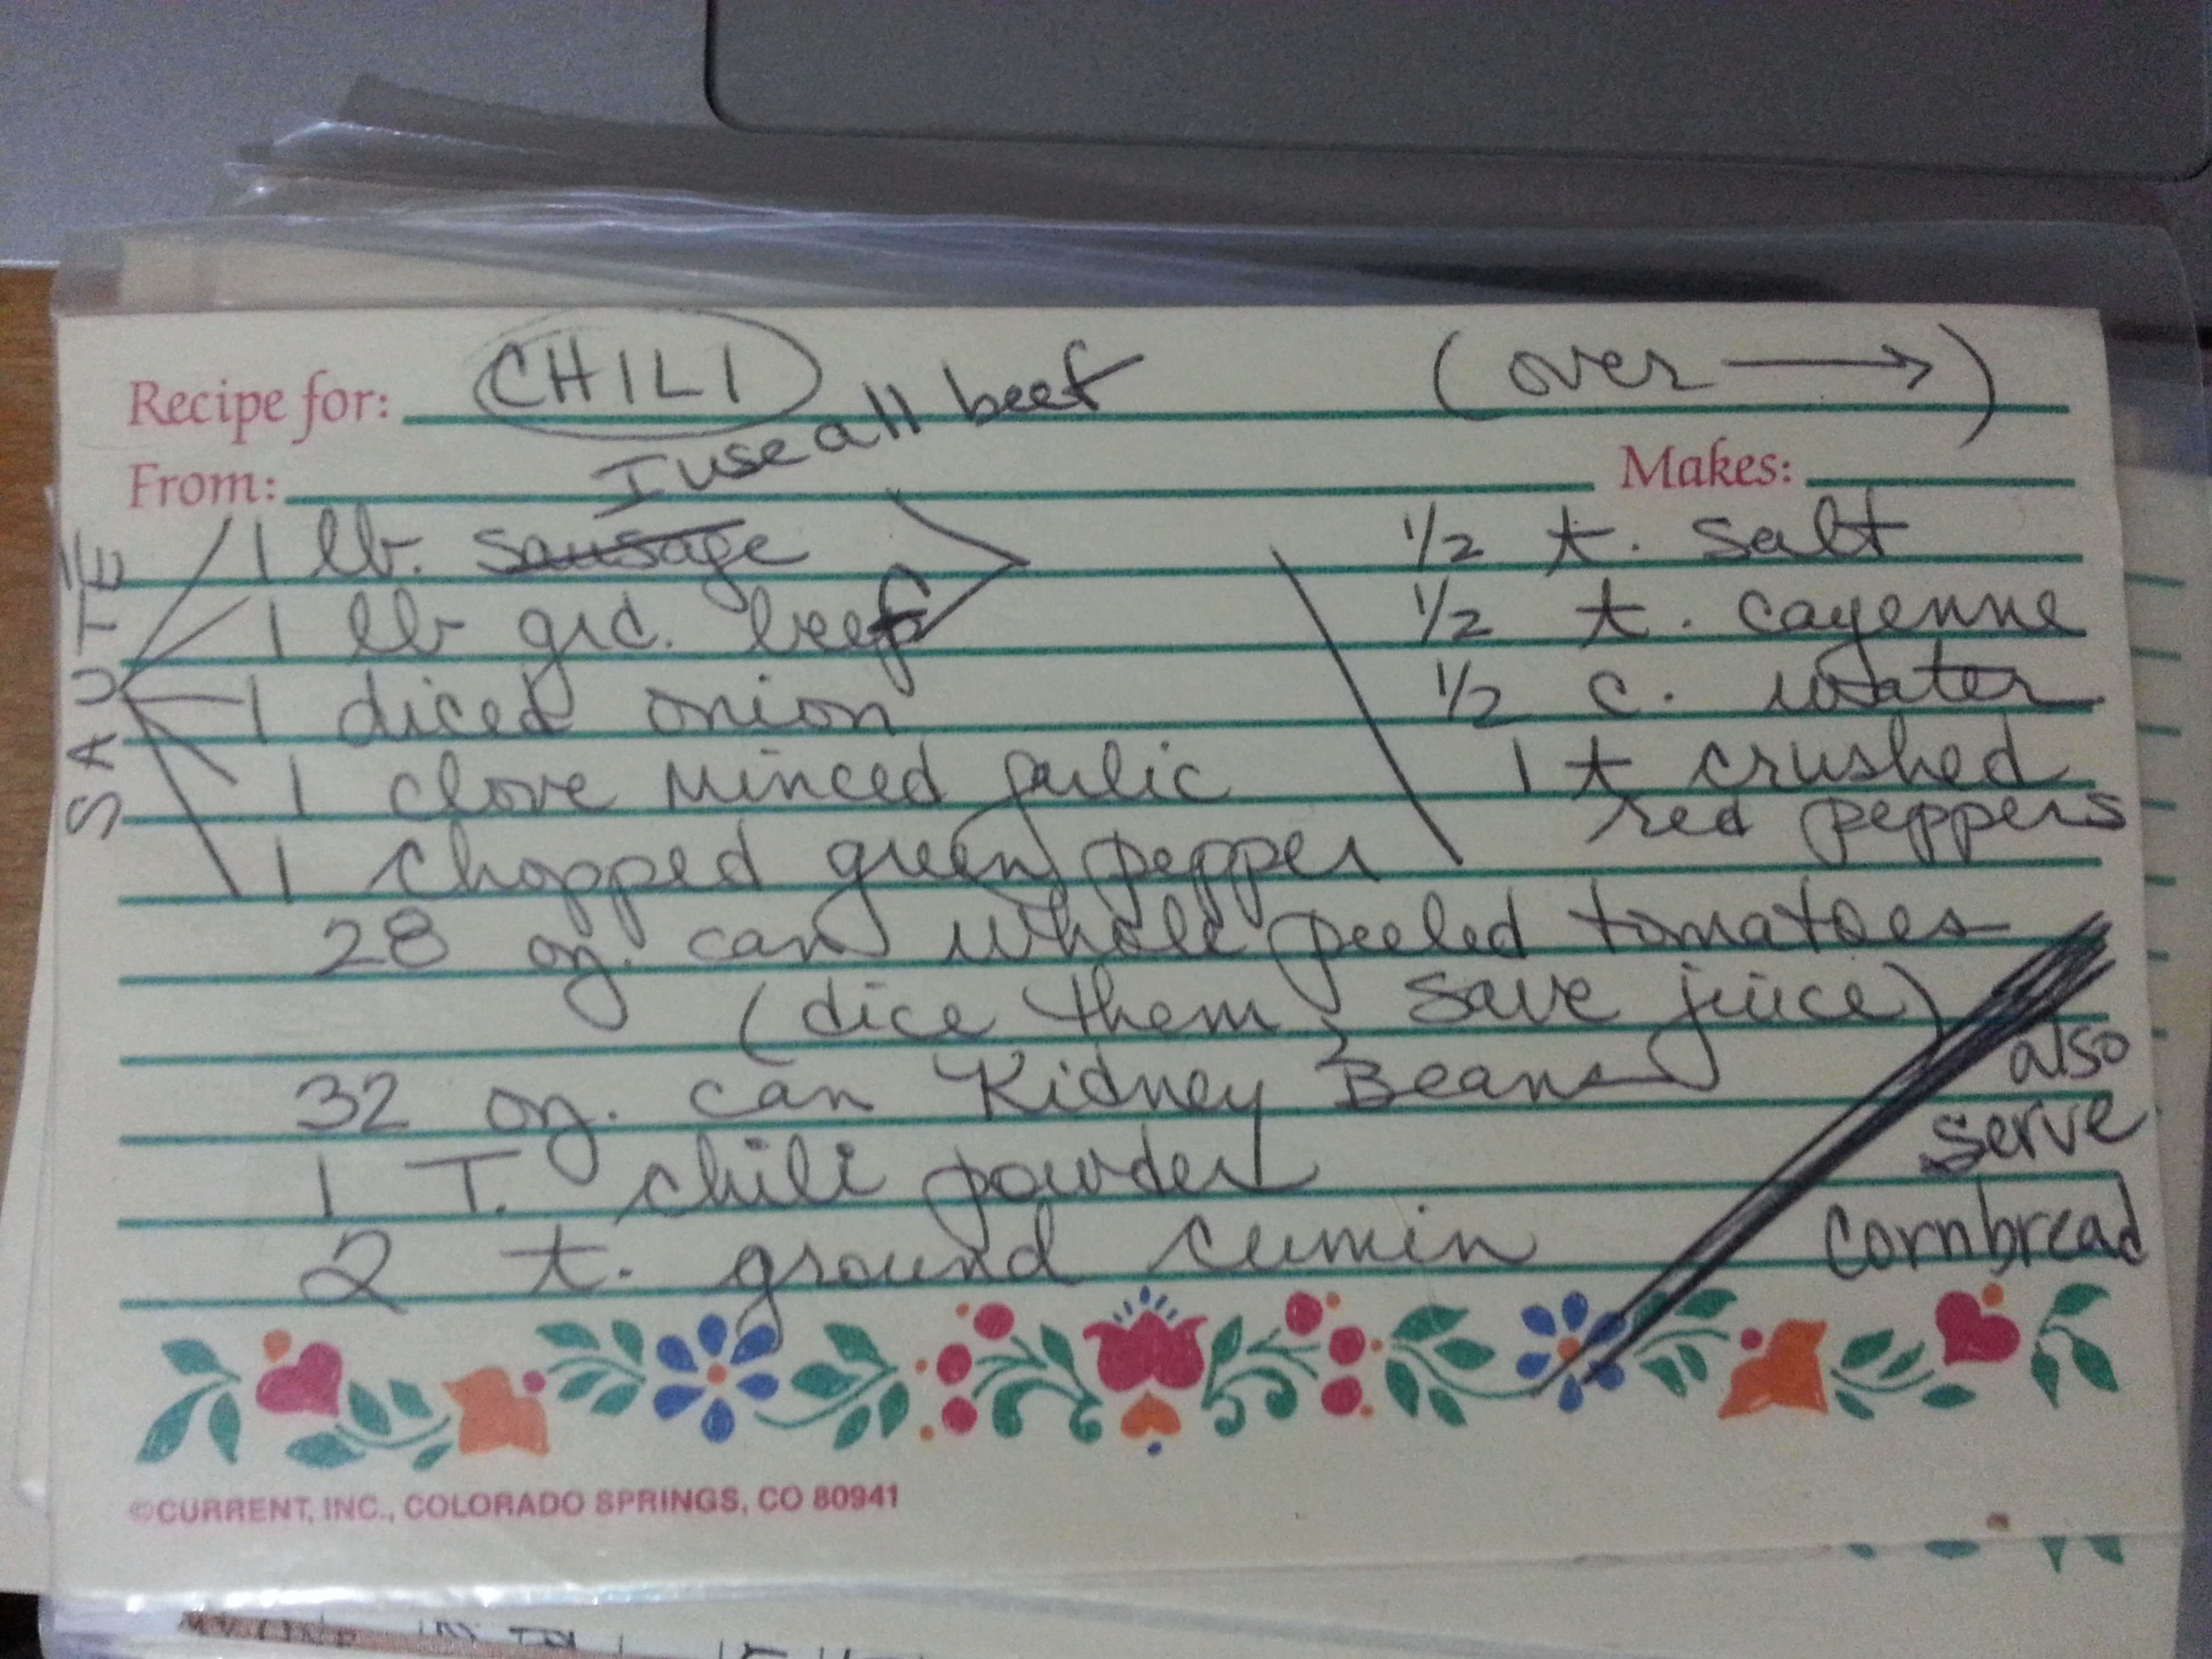 Recipe for: CHILI (over →)
I use all beef
From: Makes:
SAUTÉ
1 lb. sausage
1 lb grd. beef
1 diced onion
1 clove minced garlic
1 chopped green pepper
28 oz. can whole peeled tomatoes
(dice them, save juice)
32 oz. can Kidney Beans
1 T. chili powder
2 t. ground cumin
1/2 t. salt
1/2 t. cayenne
1/2 c. water
1 t crushed
red peppers
also
serve
cornbread
©CURRENT, INC., COLORADO SPRINGS, CO 80941